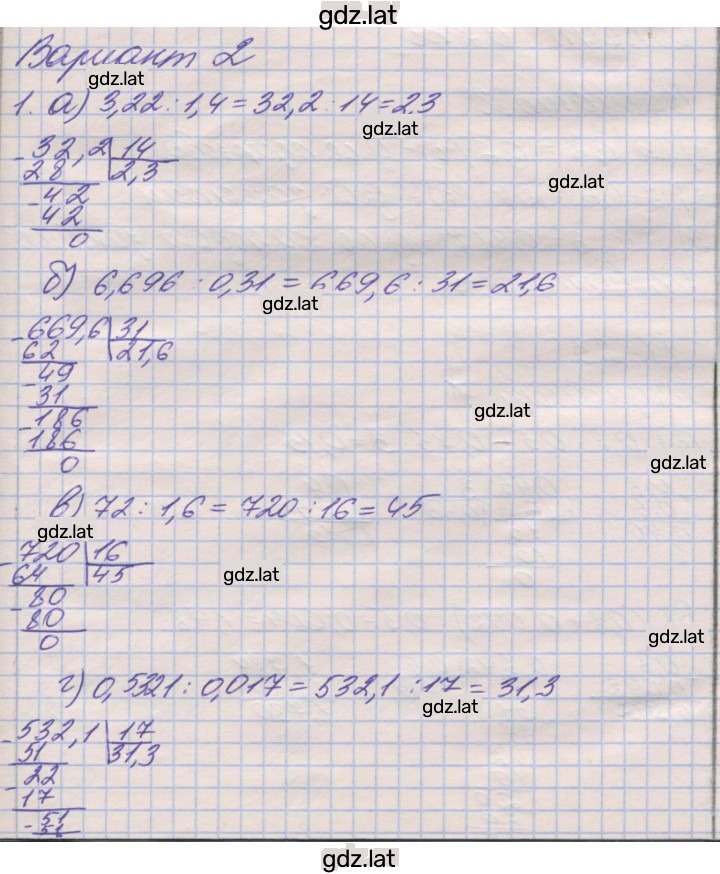 gdz.lat
Вариант 2
gdz.lat
1. а) 3,22 : 1,4 = 32,2 : 14 = 2,3
gdz.lat
- 32,2 | 14
28 | 2,3
gdz.lat
- 42
42
0
б) 6,696 : 0,31 = 669,6 : 31 = 21,6
gdz.lat
- 669,6 | 31
62 | 21,6
- 49
31
gdz.lat
- 186
186
0
gdz.lat
в) 72 : 1,6 = 720 : 16 = 45
gdz.lat
- 720 | 16
64 | 45
gdz.lat
- 80
80
0
gdz.lat
г) 0,5321 : 0,017 = 532,1 : 17 = 31,3
gdz.lat
- 532,1 | 17
51 | 31,3
- 22
17
- 51
51
gdz.lat